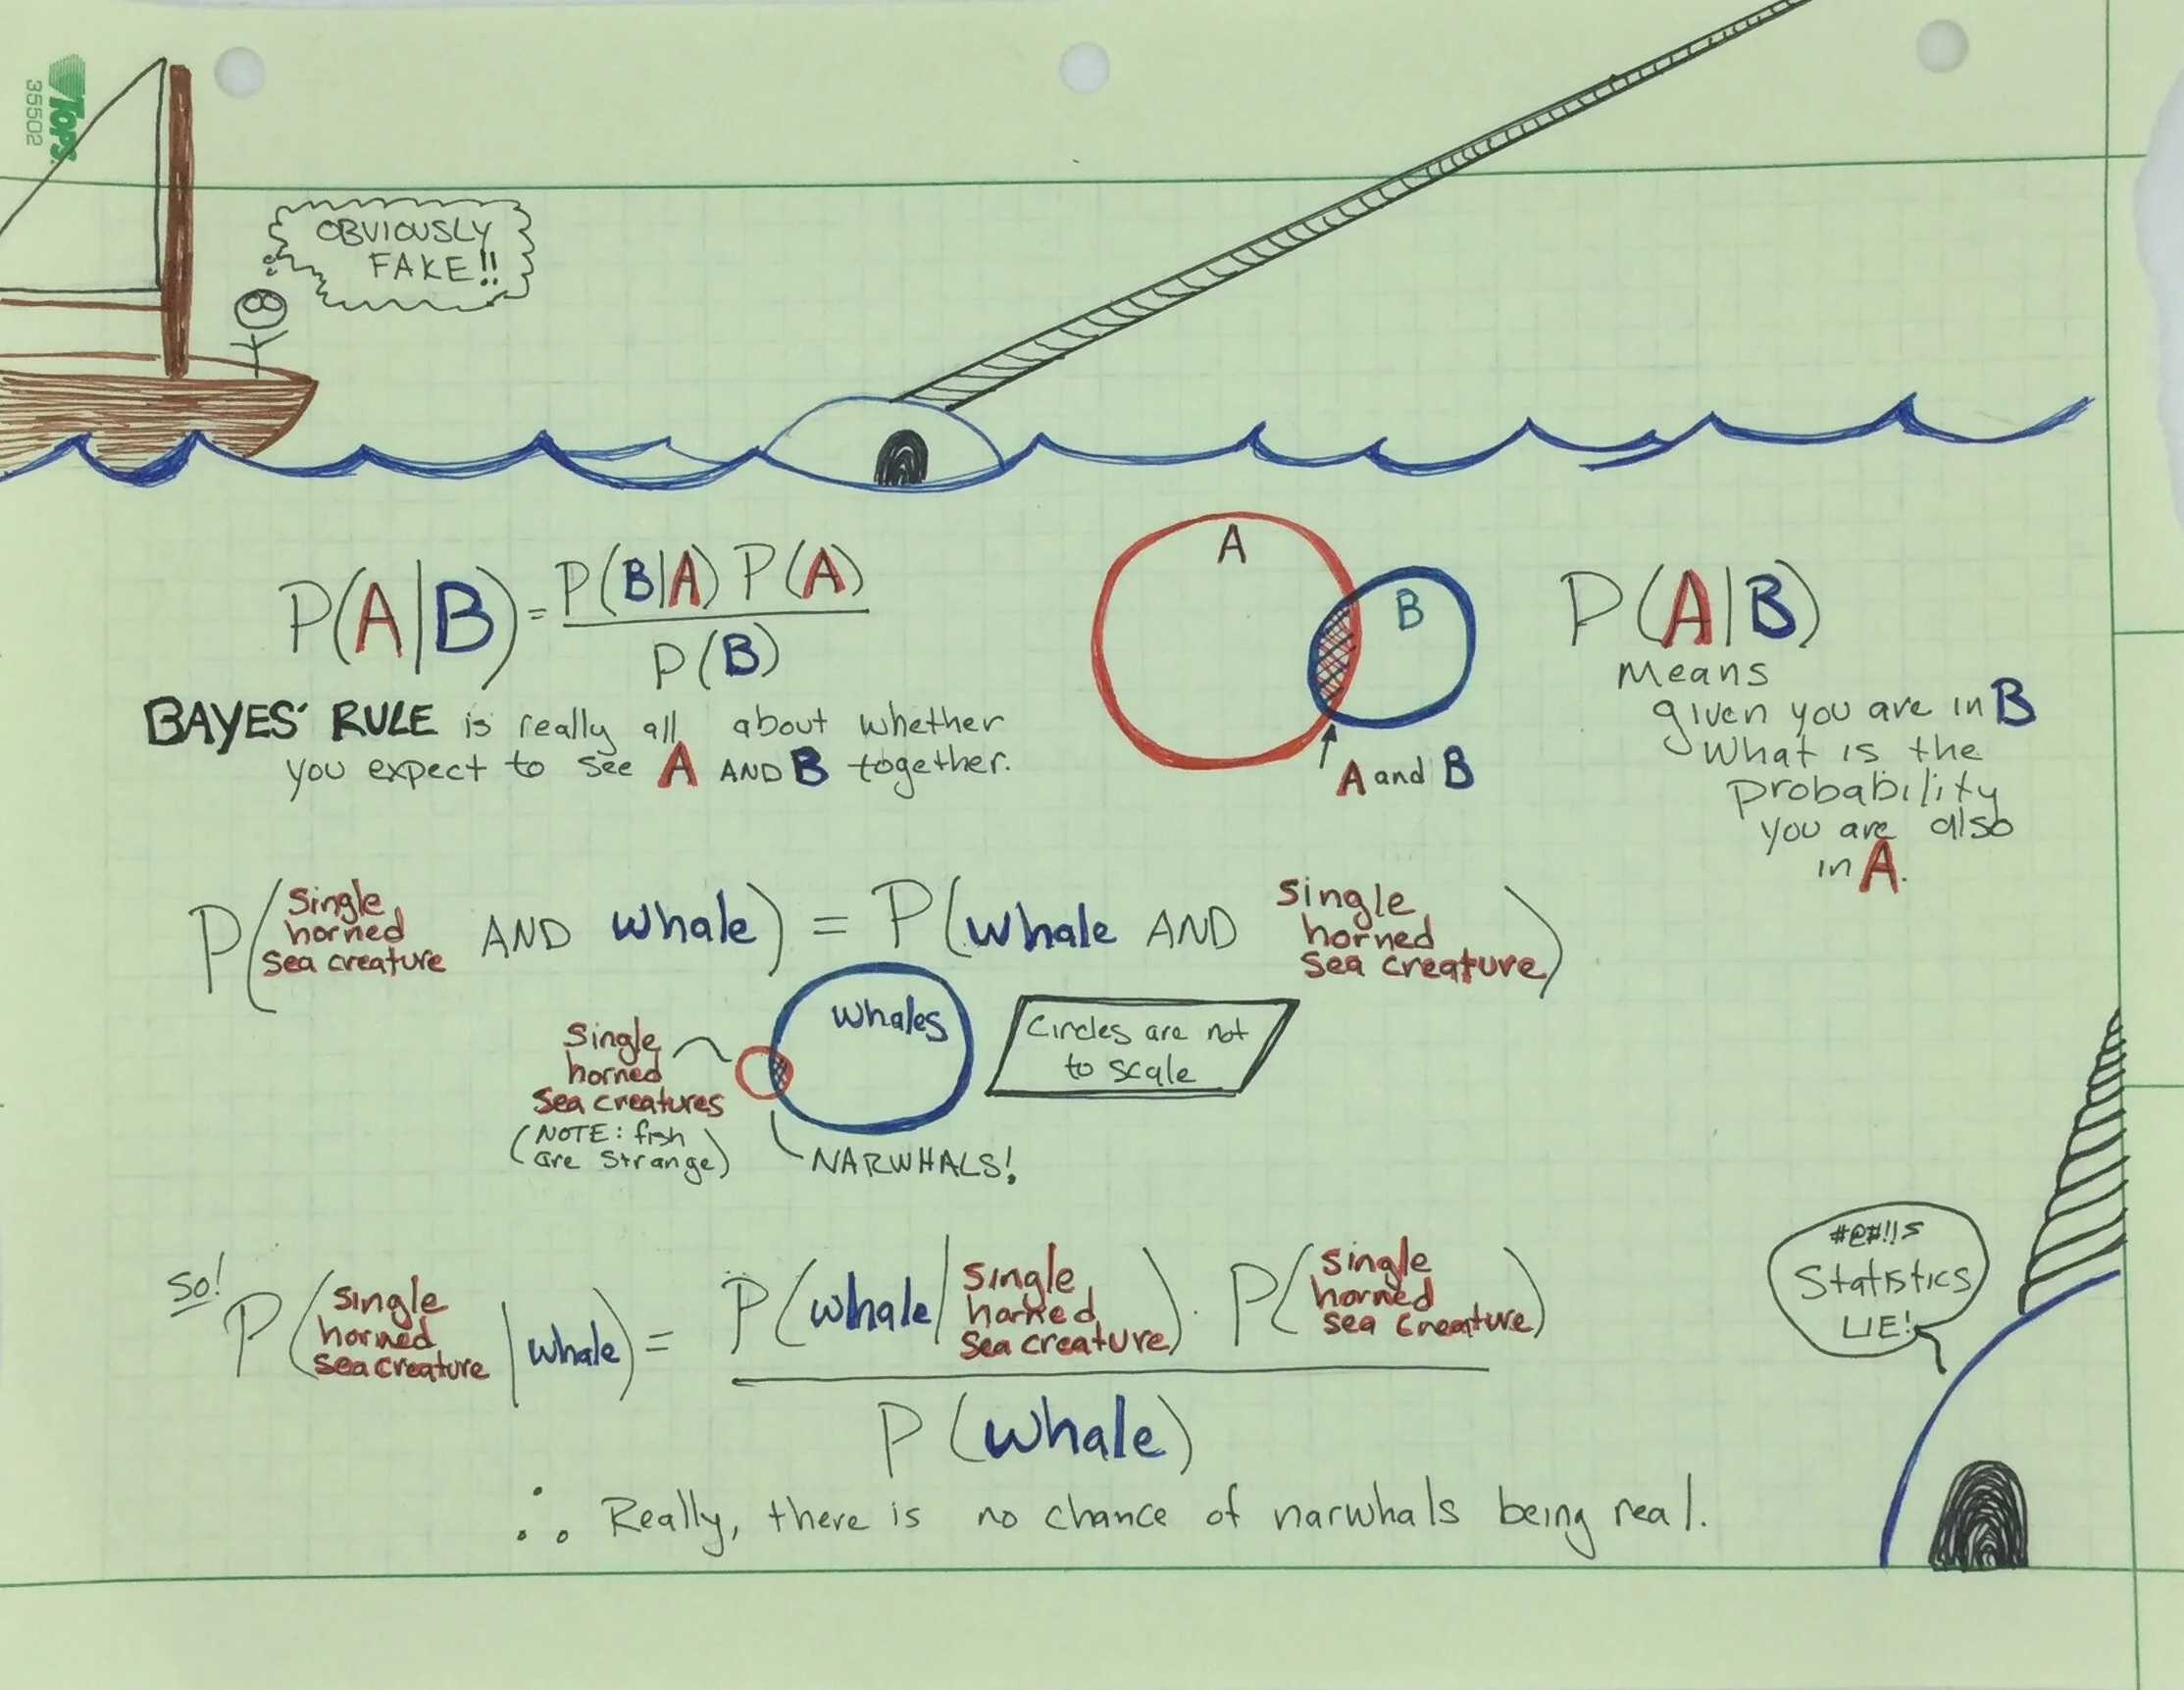 TOPS
35502
OBVIOUSLY
FAKE!!
P(A|B) = P(B|A) P(A)
P(B)
BAYES' RULE is really all about whether
you expect to see A AND B together.
A
B
A and B
P(A|B)
Means
given you are in B
What is the
probability
you are also
in A.
P(single horned sea creature AND whale) = P(whale AND single horned sea creature)
Whales
single
horned
sea creatures
(NOTE: fish
are strange)
NARWHALS!
Circles are not
to scale
SO!
P(single horned sea creature | whale) = P(whale | single horned sea creature) · P(single horned sea creature)
P(whale)
∴ Really, there is no chance of narwhals being real.
#@#!!S
Statistics
LIE!